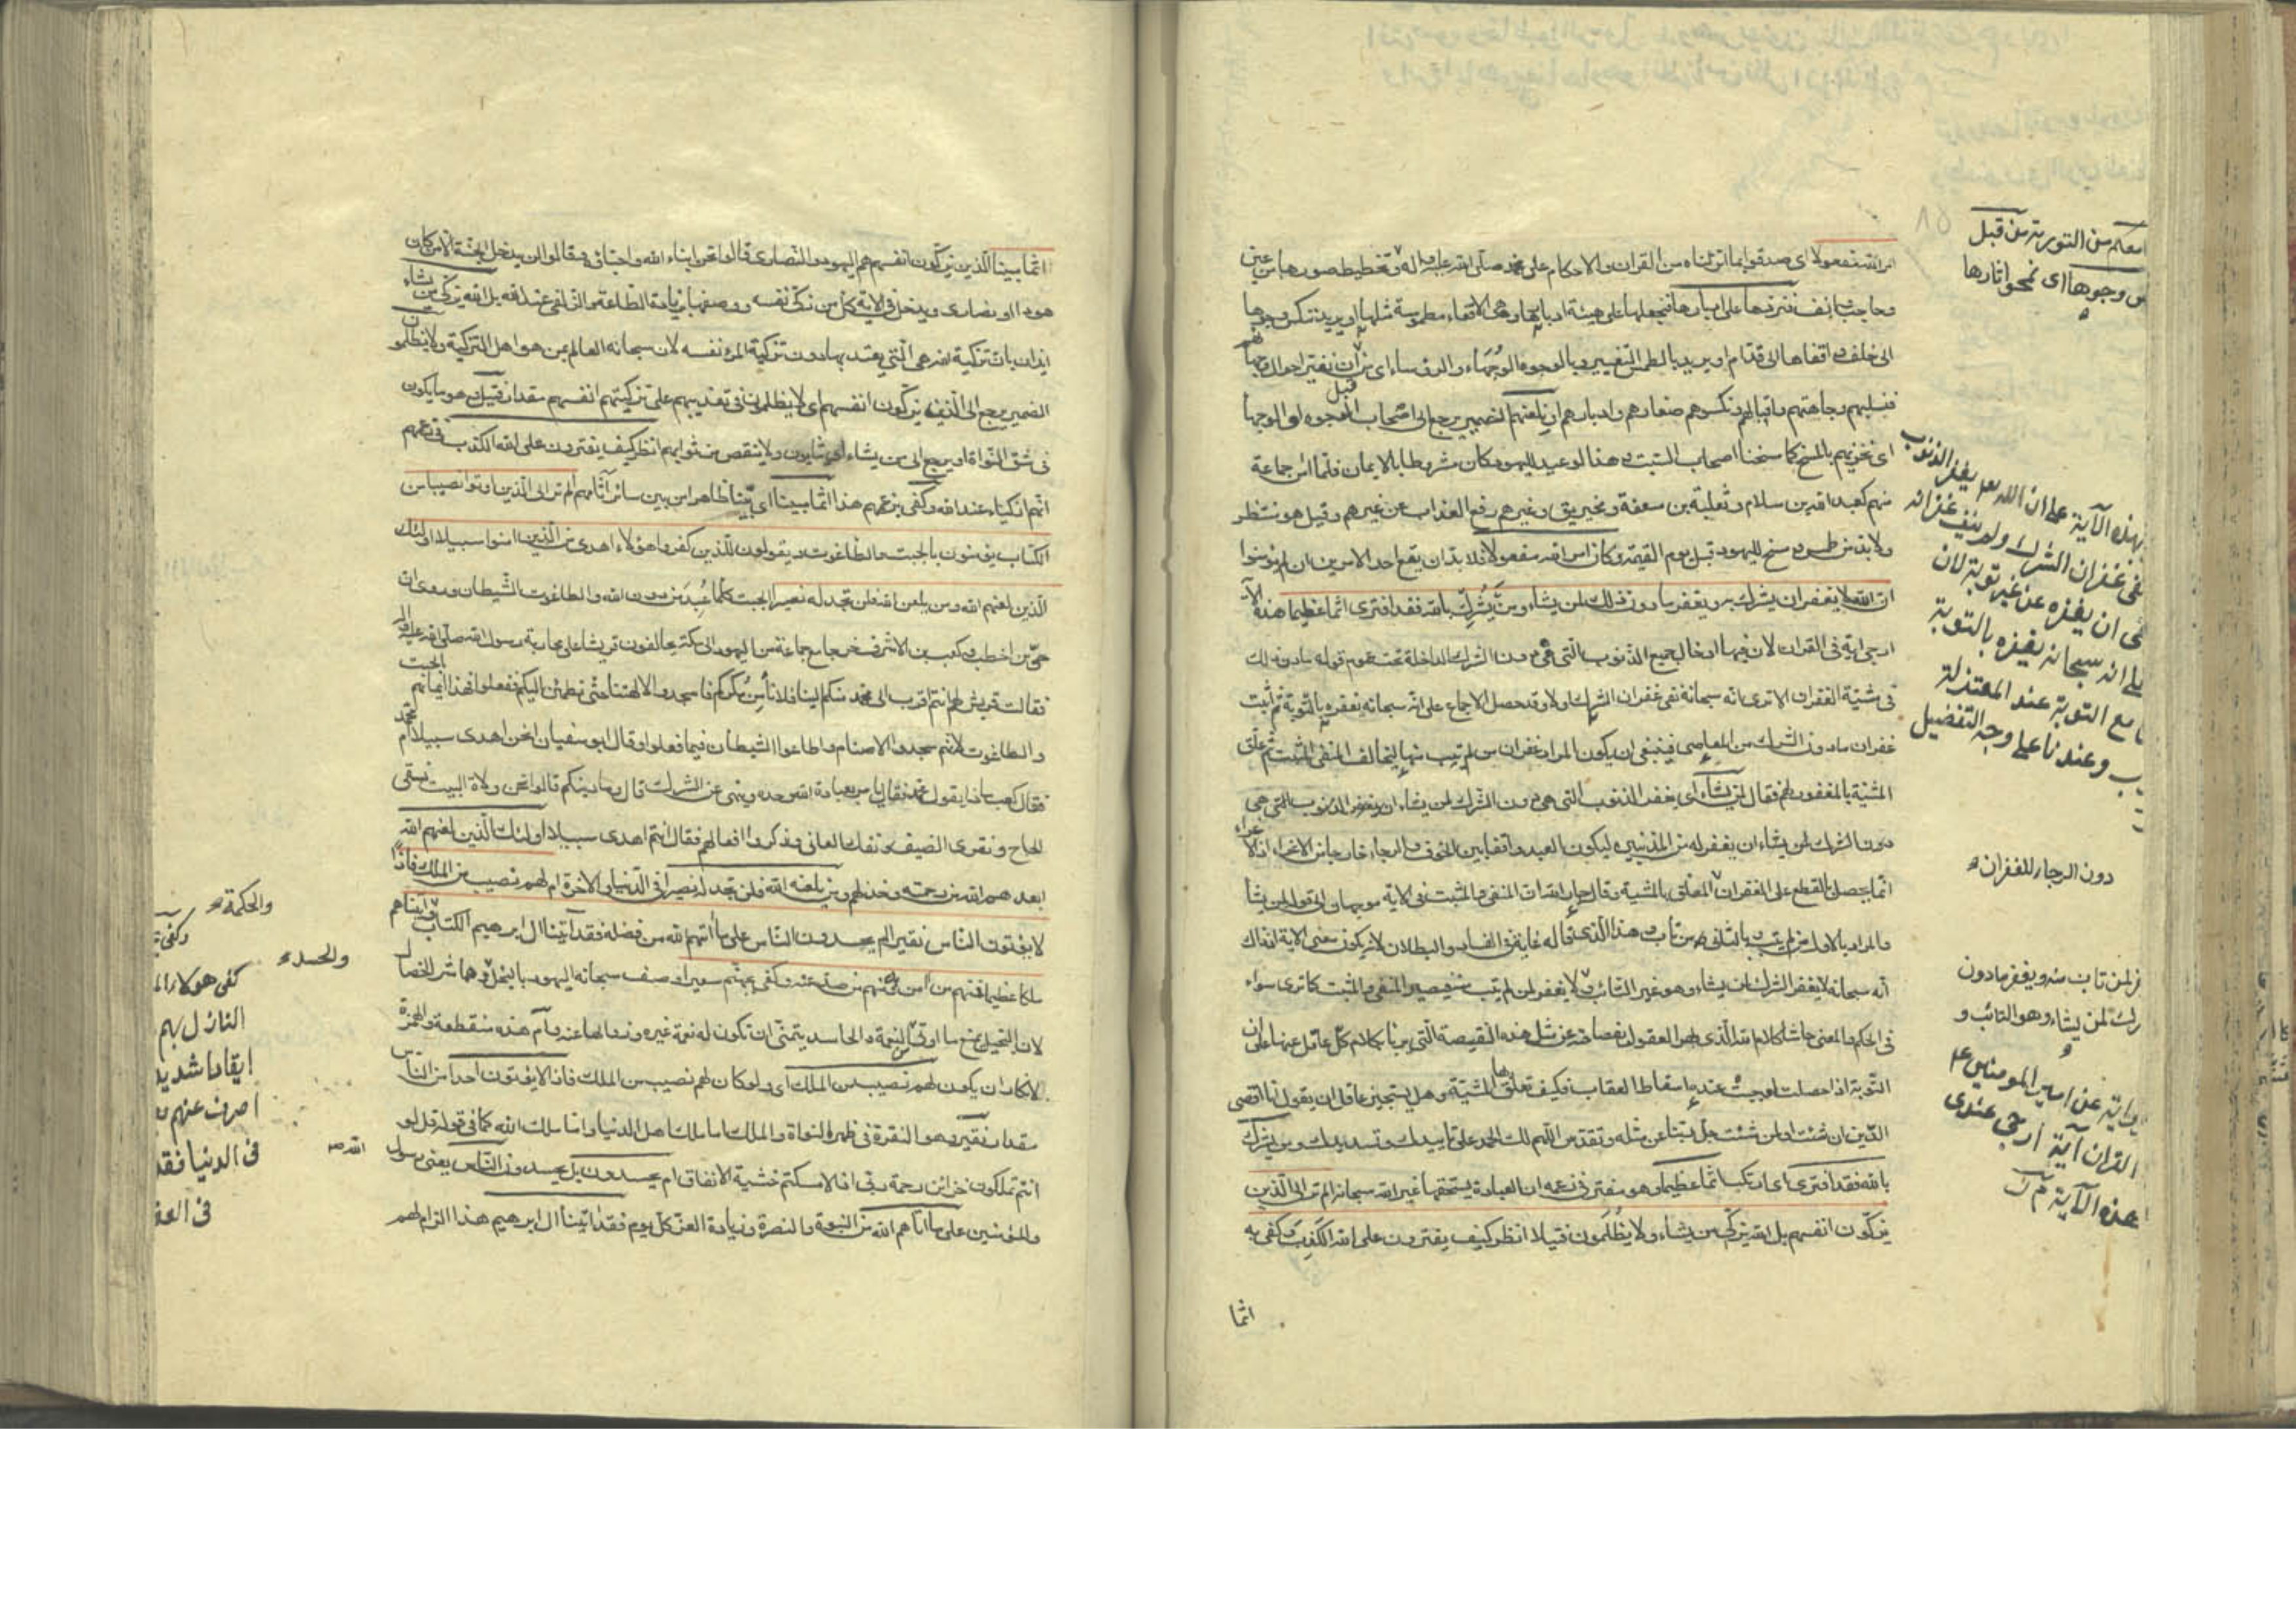 امر الله مفعولا اى صدقوا بما انزلناه من القران والاحكام على محمد صلى الله عليه واله وتخطيط صورها من عين
وحاجب وانف فنردها على ادبارها فنجعلها على هيئة ادبارها وهى الاقفاء مطموسة مثلها او يريد ننكس وجوهها
الى خلف واقفاها الى قدام او يريد بالطمس التغيير وبالوجوه الوجهاء والرؤساء اى من قبل ان نغير احوال وجهائهم
فنسلبهم وجاهتهم واقبالهم ونكسوهم صغارهم وادبارهم او نلعنهم الضمير يرجع الى اصحاب الوجوه او الوجهاء
اى نخزيهم بالمسخ كما مسخنا اصحاب السبت وهذا الوعيد لليهود وكان مشروطا بالايمان فلما امن جماعة
منهم كعبد الله بن سلام وثعلبة بن سعفة ومخيريق وغيرهم رفع العذاب عن غيرهم وقيل هو منتظر
ولا بد من طمس ومسخ لليهود قبل يوم القيمة وكان امر الله مفعولا فلا بد ان يقع احد الامرين ان لم يؤمنوا
ان الله لا يغفر ان يشرك به ويغفر ما دون ذلك لمن يشاء ومن يشرك بالله فقد افترى اثما عظيما هذه الآية
ارجى اية فى القران لان فيها ادخال جميع الذنوب التى هى دون الشرك الداخلة تحت عموم قوله ما دون ذلك
فى مشية الغفران الا ترى انه سبحانه نفى غفران الشرك اولا وقد حصل الاجماع على انه سبحانه يغفره بالتوبة ثم اثبت
غفران ما دون الشرك من المعاصى فينبغى ان يكون المراد غفران من لم يتب منها ليخالف المنفى المثبت ثم علق
المشية بالمغفور لهم فقال لمن يشاء اى يغفر الذنوب التى هى دون الشرك لمن يشاء ان يغفر الذنوب التى هى
دون الشرك لمن يشاء ان يغفر له من المذنبين ليكون العبد واقفا بين الخوف والرجاء خارجا من الاغراء اذ الاغراء
انما يحصل بالقطع على الغفران المعلق بالمشية وقال جار الله ان المنفى والمثبت فى الاية موجهان الى قوله لمن يشا
والمراد بالاول من لم يتب وبالثانى من تاب وهذا الذى قاله غاية فى الفساد والبطلان لانه يكون معنى الاية اذ ذاك
انه سبحانه لا يغفر الشرك لمن يشاء وهو غير التائب ولا يغفر لمن لم يتب منه فيصير المنفى والمثبت كما ترى سواء
فى الحكم والمعنى حاشا كلام الله الذى بهر العقول بفصاحته عن مثل هذه النقيصة التى يربا بكلام كل عاقل عنها على ان
التوبة اذا حصلت اوجبت عنده اسقاط العقاب فكيف تعلق بها المشية وهل يستجيز عاقل ان يقول انا اقضى
الدين ان شئت او لمن شئت جل ربنا عن مثله وتقدس اللهم لك الحمد على تاييدك وتسديدك ومن يشرك
بالله فقد افترى اى ارتكب اثما عظيما وهو مفتر فى زعمه ان العبادة يستحقها غير الله سبحانه الم تر الى الذين
يزكون انفسهم بل الله يزكى من يشاء ولا يظلمون فتيلا انظر كيف يفترون على الله الكذب وكفى به
اثما
معكم من التورية من قبل
وجوها اى نمحو اثارها
بهذه الآية على ان الله يغفر الذنوب
نفى غفران الشرك ولم ينف غفرانه
ان يغفره عن غير توبة لان
على انه سبحانه يغفره بالتوبة
مع التوبة عند المعتزلة
وعندنا على وجه التفضيل
دون الرجاء للغفران
لمن تاب منه ويغفر ما دون
لمن يشاء وهو التائب و
عن امير المومنين ع
القران آية ارجى عندى
هذه الآية
اثما مبينا الذين يزكون انفسهم هم اليهود والنصارى قالوا نحن ابناء الله واحباؤه وقالوا لن يدخل الجنة الا من كان
هودا او نصارى ويدخل فى الاية كل من زكى نفسه ووصفها بزيادة الطاعة والزلفى عند الله بل الله يزكى من يشاء
ايذان بان تزكية الله هى التى يعتد بها دون تزكية المرء نفسه لان سبحانه العالم بمن هو اهل التزكية ولا يظلمون
الضمير يرجع الى الذين يزكون انفسهم اى لا يظلمون فى تعذيبهم على تزكيتهم انفسهم مقدار فتيل وهو ما يكون
فى شق النواة او يرجع الى من يشاء اى يثابون ولا ينقص من ثوابهم انظر كيف يفترون على الله الكذب فى زعمهم
انهم ازكياء عند الله وكفى بزعمهم هذا اثما مبينا اى بينا ظاهرا من بين سائر آثامهم الم تر الى الذين اوتوا نصيبا من
الكتاب يؤمنون بالجبت والطاغوت ويقولون للذين كفروا هؤلاء اهدى من الذين امنوا سبيلا اولئك
الذين لعنهم الله ومن يلعن الله فلن تجد له نصيرا الجبت كلما عبد من دون الله والطاغوت الشيطان وروى ان
حى بن اخطب وكعب بن الاشرف خرجا مع جماعة من اليهود الى مكة يحالفون قريشا على محاربة رسول الله صلى الله عليه واله
فقالت قريش لهم انتم اقرب الى محمد منكم الينا فلا نأمن مكركم فاسجدوا لالهتنا حتى نطمئن اليكم ففعلوا فهذا ايمانهم بالجبت
والطاغوت لانهم سجدوا للاصنام واطاعوا الشيطان فيما فعلوا وقال ابو سفيان انحن اهدى سبيلا ام محمد
فقال كعب ماذا يقول محمد فقال يامر بعبادة الله وحده وينهى عن الشرك قال وما دينكم قالوا نحن ولاة البيت نسقى
الحاج ونقرى الضيف ونفك العانى وذكروا افعالهم فقال انتم اهدى سبيلا اولئك الذين لعنهم الله
ابعدهم الله من رحمته وخذلهم ومن يلعنه الله فلن تجد له نصيرا فى الدنيا والاخرة ام لهم نصيب من الملك فاذا
لا يؤتون الناس نقيرا ام يحسدون الناس على ما آتيهم الله من فضله فقد آتينا ال ابرهيم الكتاب وآتيناهم
ملكا عظيما فمنهم من آمن به ومنهم من صد عنه وكفى بجهنم سعيرا وصف سبحانه اليهود بالبخل وهما شر الخصال
لان البخيل يمنع ما اوتى من النعمة والحاسد يتمنى ان تكون له نعمة غيره وزوالها عنه وآم هذه منقطعة والهمزة
لانكار ان يكون لهم نصيب من الملك اى ولو كان لهم نصيب من الملك فاذا لا يؤتون احدا من الناس
مقدار نقير وهو النقرة فى ظهر النواة والملك اما ملك اهل الدنيا واما ملك الله كما فى قوله قل لو
انتم تملكون خزائن رحمة ربى اذا لامسكتم خشية الانفاق ام يحسدون بل يحسدون الناس يعنى رسول الله ص
والمؤمنين على ما اتاهم الله من النبوة والنصرة وزيادة العز كل يوم فقد اتينا ال ابرهيم هذا الزام لهم
والحكمة
وكفى
والحسد
كفى هؤلاء
النازل بهم
ايقادا شديد
اصرف عنهم
فى الدنيا فقد